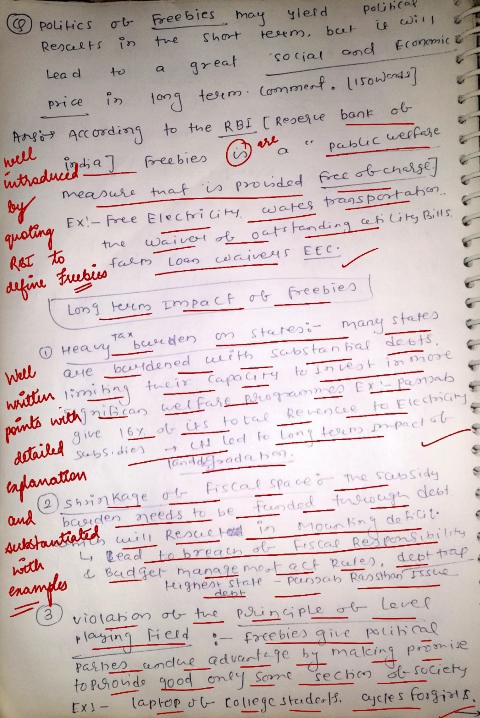 Q Politics of Freebies may yield political
Results in the short term, but it will
Lead to a great social and Economic
price in long term. Comment. [150 words]
Ans:- According to the RBI [Reserve bank of
India] Freebies is are a "public welfare
measure that is provided free of charge]
Ex:- Free Electricity, water transportation
the waiver of outstanding utility Bills.
farm Loan waivers EEC.
well
introduced
by
quoting
RBI to
define Freebies
Long term Impact of Freebies
① Heavy tax burden on states:- many states
are burdened with substantial debts.
limiting their capacity to invest in more
significan welfare programmes Ex:- Punjab
give 16% of its total Revenue to Electricity
subsidies → led to long term impact of
Well
written
points with
detailed
explanation
and
substantiated
with
examples
② Shrinkage of Fiscal space:- The subsidy
burden needs to be funded through debt
which will Result in Mounting deficit.
↳ Lead to breach of Fiscal Responsibility
& Budget management act Rules, debt trap
Highest state debt Punsab Rassthan Issue
③ violation of the principle of Level
playing Field :- freebies give political
parties undue advantage by making promise
to provide good only some section of society
Ex:- laptop of college students. cycles for girls.